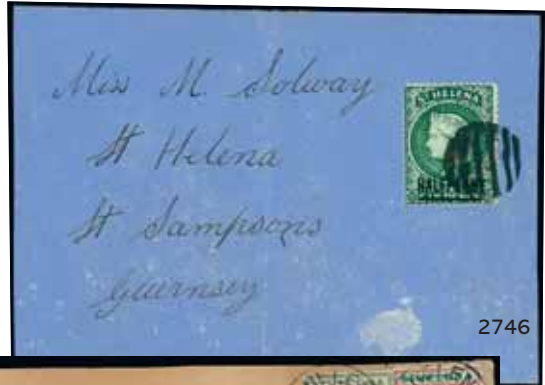 Miss M. Solway
St Helena
St Sampsons
Guernsey
ST HELENA
HALF PENNY
2746